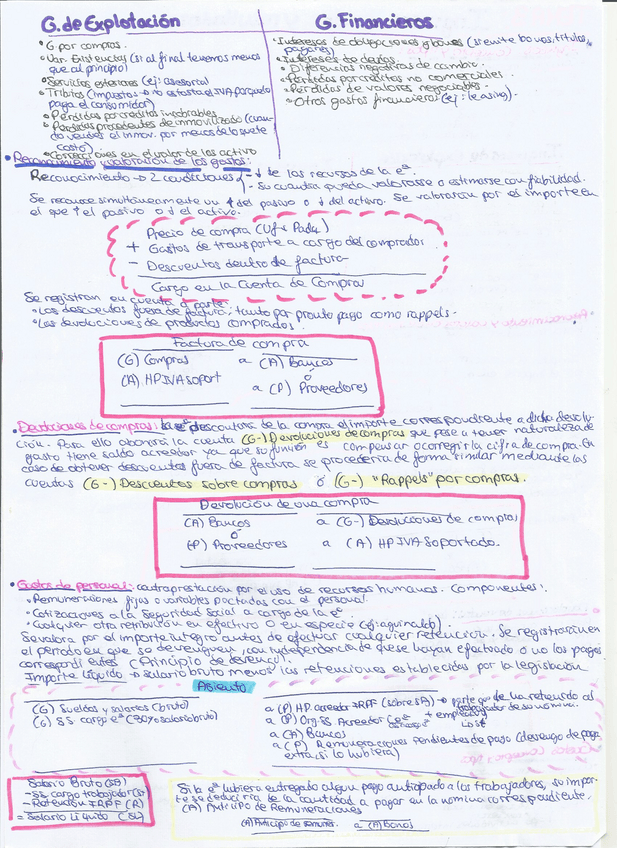 G. de Explotación
• G por compras.
• Var. Existencias (si al final tenemos menos
que al principio)
• Servicios exteriores (ej: asesoría)
• Tributos (impuestos → no está el IVA porque lo
paga el consumidor)
• Pérdidas por créditos incobrables
• Pérdidas procedentes de inmovilizado (cuan-
do vendes el inmov. por menos de lo que te
costó)
• Correcciones en el valor de los activo
G. Financieros
• Intereses de obligaciones y bonos (si emite bonos, títulos,
pagarés)
• Intereses de deudas
• Diferencias negativas de cambio.
• Pérdidas por créditos no comerciales.
• Pérdidas de valores negociables.
• Otros gastos financieros (ej: leasing).
• Reconocimiento y valoración de los gastos:
Reconocimiento → 2 condiciones - ↓ de los recursos de la eª
- Su cuantía pueda valorarse o estimarse con fiabilidad.
Se reconoce simultáneamente un ↑ del pasivo o ↓ del activo. Se valorarán por el importe en
el que ↑ el pasivo o ↓ el activo.
Precio de compra (Uf x Pud)
+ Gastos de transporte a cargo del comprador
- Descuentos dentro de factura
Cargo en la Cuenta de Compras
Se registran en cuenta a parte:
• Los descuentos fuera de factura: tanto por pronto pago como rappels.
• Las devoluciones de productos comprados.
Factura de compra
(G) Compras a (A) Bancos
ó
(A) HP IVA soport a (P) Proveedores
• Devoluciones de compras: la eª descontará de la compra el importe correspondiente a dicha devolu-
ción. Para ello abonará la cuenta (G-) Devoluciones de compras que pese a tener naturaleza de
gasto tiene saldo acreedor ya que su función es compensar o corregir la cifra de compra. En
caso de obtener descuentos fuera de factura se procedería de forma similar mediante las
cuentas (G-) Descuentos sobre compras ó (G-) "Rappels" por compras.
Devolución de una compra
(A) Bancos a (G-) Devoluciones de compras
ó
(P) Proveedores a (A) HP IVA Soportado.
• Gastos de personal: contraprestación por el uso de recursos humanos. Componentes:
• Remuneraciones fijas o variables pactadas con el personal.
• Cotizaciones a la Seguridad Social a cargo de la eª
• Cualquier otra retribución en efectivo o en especie (ej: aguinaldo).
Se valora por el importe íntegro antes de efectuar cualquier retención. Se registrarán en
el periodo en que se devenguen, con independencia de que se hayan efectuado o no los pagos
correspondientes (Principio de devengo).
Importe Líquido → salario bruto menos las retenciones establecidas por la legislación
Asiento
(G) Sueldos y salarios (bruto)
(G) SS cargo eª (30% salario bruto)
a (P) HP acreedor IRPF (sobre SA) → parte qª de ha retenido al
trabajador de su nómina.
a (P) Org SS Acreedor (eª + empleado)
a (A) Bancos
a (P) Remuneraciones pendientes de pago (devengo de paga
extra, si lo hubiera)
Salario Bruto (SB)
- SS cargo trabajador (ST)
- Retención IRPF (R)
= Salario Líquido (SL)
Si la eª hubiera entregado algún pago anticipado a los trabajadores, su impor-
te se deduciría de la cantidad a pagar en la nómina correspondiente.
(A) Anticipo de Remuneraciones
(A) Anticipo de remuner. a (A) Bancos